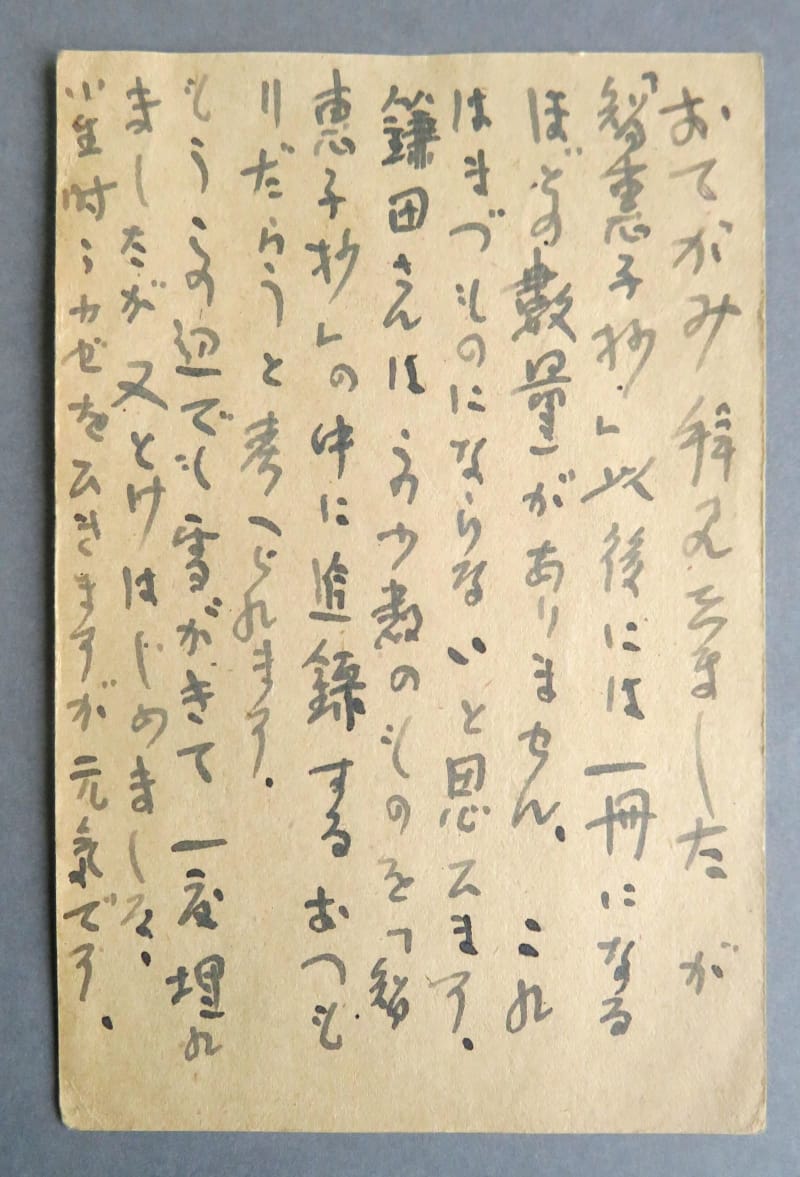 おてがみ拝見しましたが
「智恵子抄」以後には一冊になる
ほどの數量がありません。これ
はまづものにならないと思ひます。
鎌田さんはこの少数のものを「智
恵子抄」の中に追録するおつも
りだらうと考へられます。
もうこの辺でも雪がきて一度埋れ
ましたが又とけはじめました。
小生時々カゼをひきますが元気です。